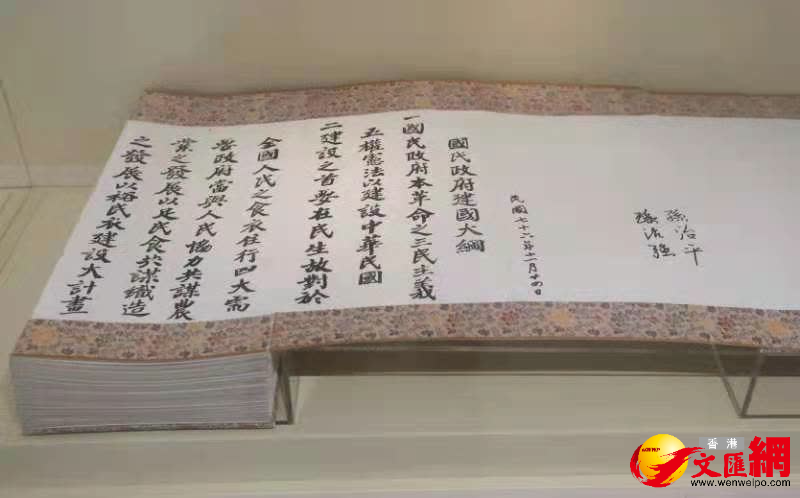 孫治平
孫治強
民國七十六年十一月十四日
國民政府建國大綱
一國民政府本革命之三民主義
五權憲法以建設中華民國
二建設之首要在民生故對於
全國人民之食衣住行四大需
要政府當與人民協力共謀農
業之發展以足民食共謀織造
之發展以裕民衣建設大計畫
香港
文匯網
www.wenweipo.com